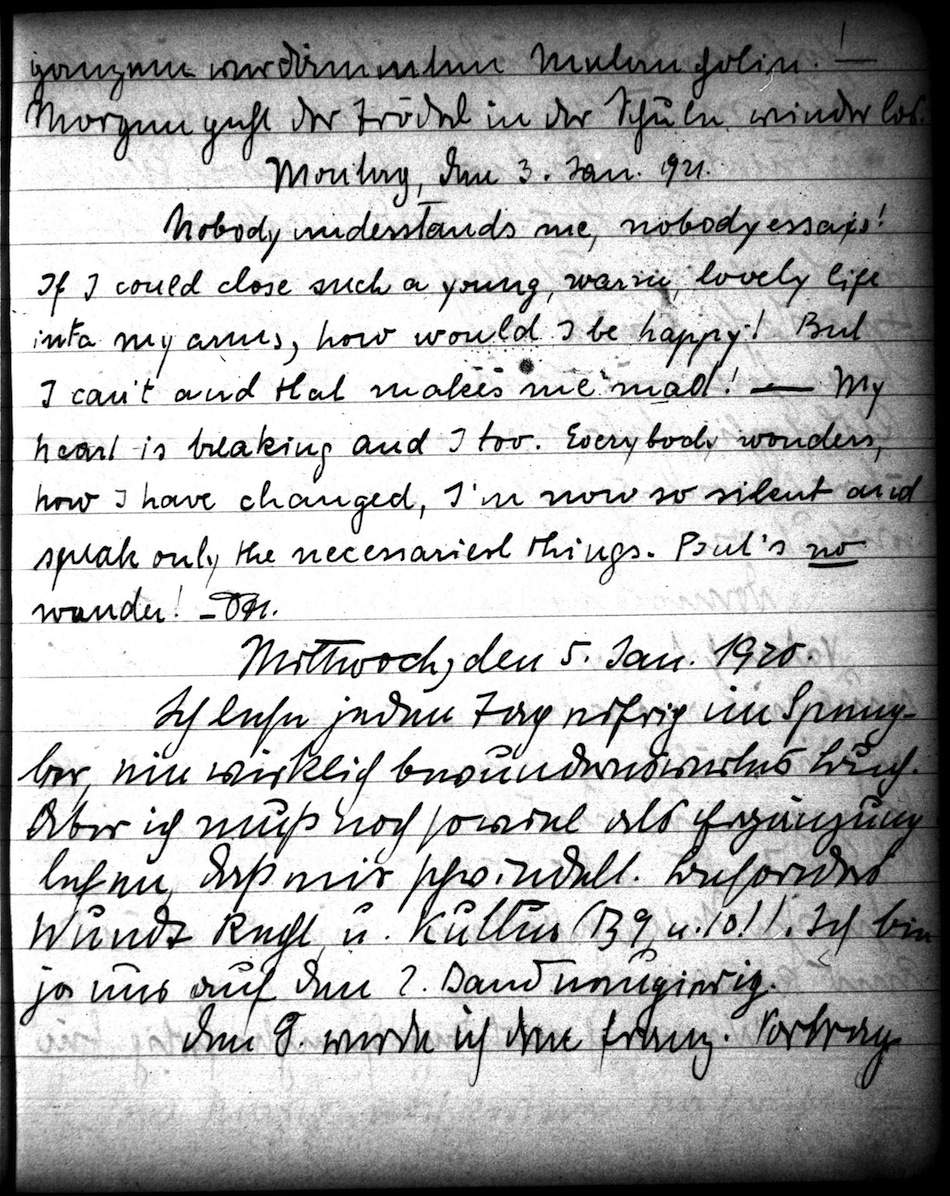 ganzen verdammten Melancholie. —
Morgen geht der Trödel in der Schule wieder los.
Montag, den 3. Jan. 921.
Nobody understands me, nobody essays!
If I could close such a young, warm, lovely life
into my arms, how would I be happy! But
I can't and that makes me mad! — My
heart is breaking and I too. Everybody wonders,
how I have changed, I'm now so silent and
speak only the necessariest things. But's no
wonder! —
Mittwoch, den 5. Jan. 1920.
Ich lese jeden Tag eifrig im Speng-
ler, ein wirklich bewundernswertes Buch.
Aber ich muß noch soviel als Ergänzung
lesen, daß mir schwindelt. Besonders
Wundt Recht u. Kultur (B 9 u. 10!). Ich bin
ja nur auf den 2. Band neugierig.
Den 9. werde ich den franz. Vortrag